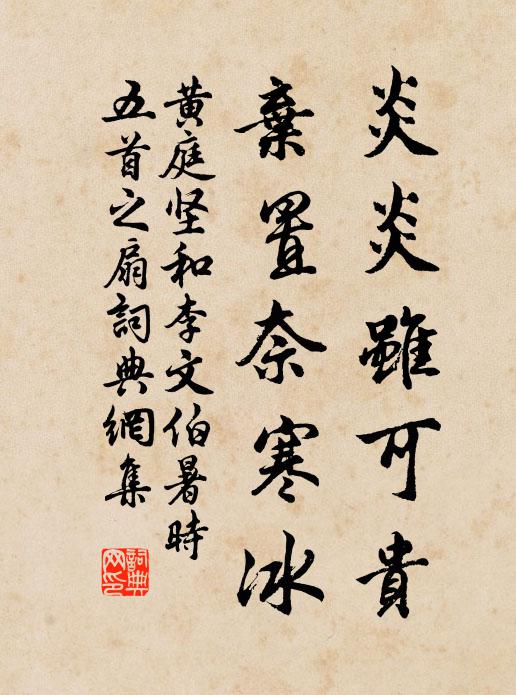 炎炎雖可貴
棄置奈寒冰
黄庭坚和李文伯暑時
五首之扇詞典網集
詞典网印